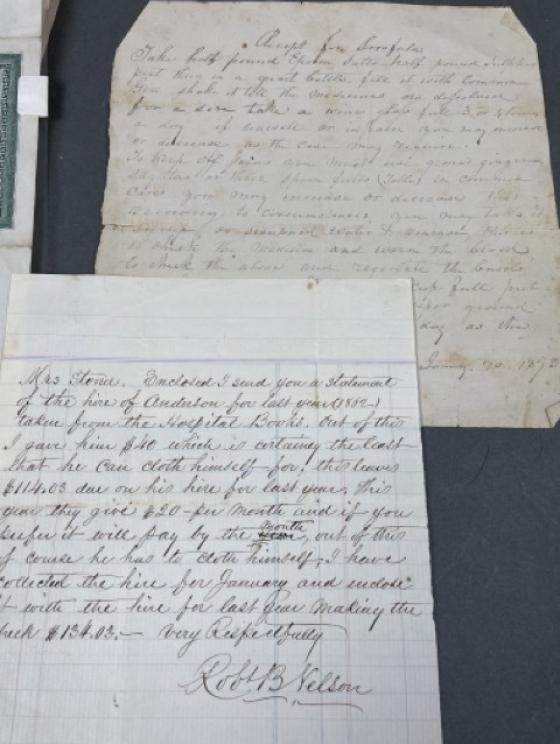 Receipt for Scrofula
Take half pound Epsom Salts half pound
put them in a quart bottle, fill it with common
Gin shake it till the medicines are dissolved
for a dose take a wine glass full 3 or 4 times
a day if
or decrease as the case may require.
To keep off you must use ground ginger
two or three spoon fulls (Table) in common
cases you may increase or decrease this
according to circumstances, you may take it
in syrup, or sweetened water &
to check the medicine and warm the blood
to check the above and regulate the bowels
full put
ground
day as the
Jany. 20. 1873
Mrs Stoner. Enclosed I send you a statement
of the hire of Anderson for last year (1862-)
taken from the Hospital Books. out of this
I gave him $40 which is certainly the least
that he can cloth himself for, this leaves
$114.03 due on his hire for last year. This
year they give $20- per month and if you
prefer it will pay by the month, out of this
of course he has to cloth himself, I have
collected the hire for January and enclose
it with the hire for last year making the
check $134.03.— Very Respectfully
Robt B Nelson